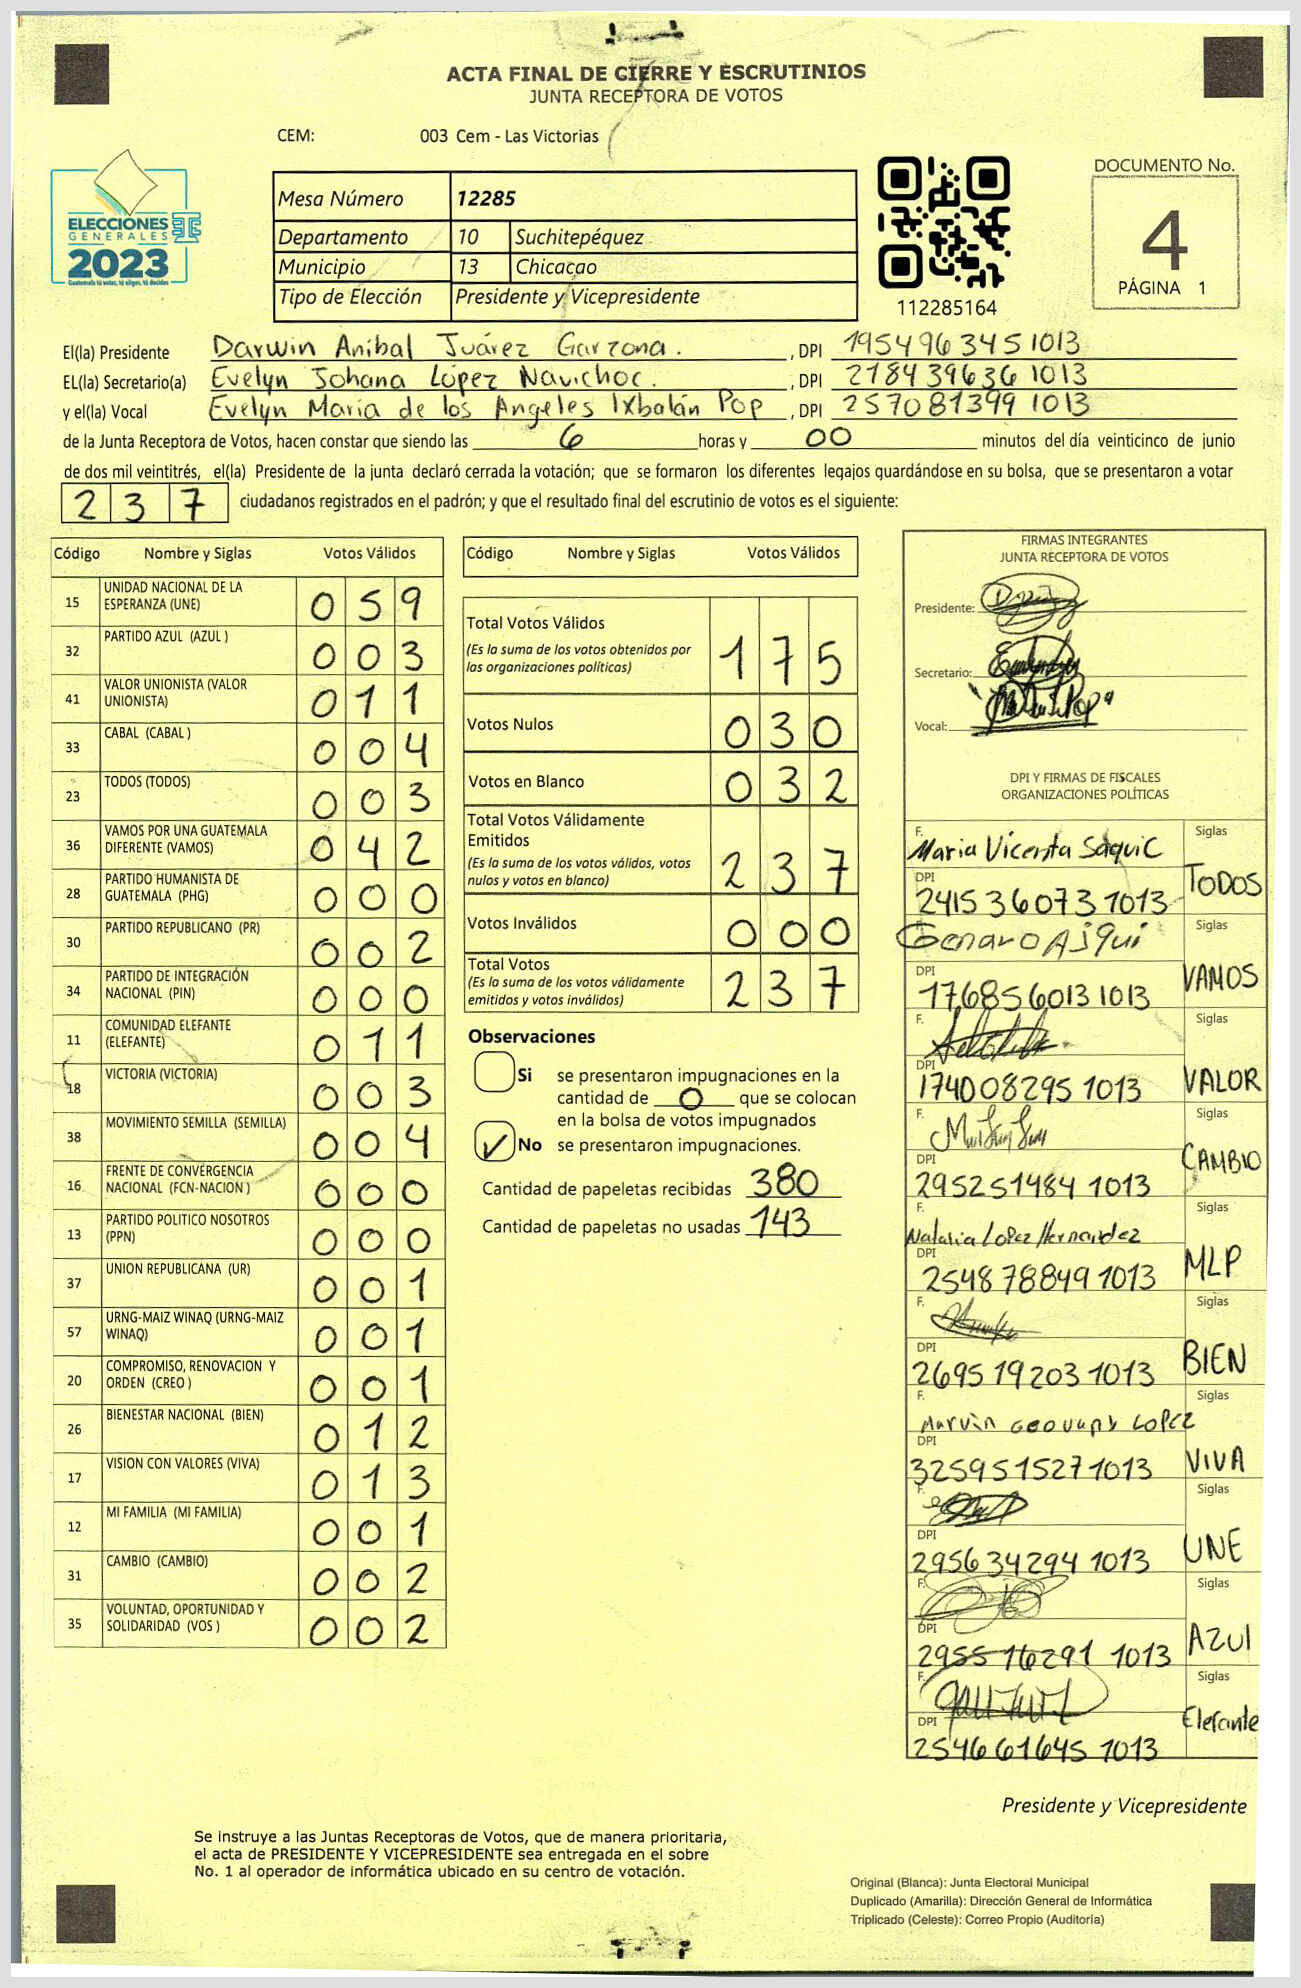 ACTA FINAL DE CIERRE Y ESCRUTINIOS
JUNTA RECEPTORA DE VOTOS
CEM: 003 Cem - Las Victorias
ELECCIONES
GENERALES
2023
Guatemala tú votas, tú eliges, tú decides
Mesa Número 12285
Departamento 10 Suchitepéquez
Municipio 13 Chicacao
Tipo de Elección Presidente y Vicepresidente
112285164
DOCUMENTO No.
4
PÁGINA 1
El(la) Presidente Darwin Aníbal Juárez Garzona. , DPI 195496345 1013
EL(la) Secretario(a) Evelyn Johana López Navichoc. , DPI 218439636 1013
y el(la) Vocal Evelyn María de los Angeles Ixbalán Pop , DPI 257081399 1013
de la Junta Receptora de Votos, hacen constar que siendo las 6 horas y 00 minutos del día veinticinco de junio
de dos mil veintitrés, el(la) Presidente de la junta declaró cerrada la votación; que se formaron los diferentes legajos guardándose en su bolsa, que se presentaron a votar
237 ciudadanos registrados en el padrón; y que el resultado final del escrutinio de votos es el siguiente:
Código Nombre y Siglas Votos Válidos
15 UNIDAD NACIONAL DE LA
ESPERANZA (UNE) 059
32 PARTIDO AZUL (AZUL ) 003
41 VALOR UNIONISTA (VALOR
UNIONISTA) 011
33 CABAL (CABAL ) 004
23 TODOS (TODOS) 003
36 VAMOS POR UNA GUATEMALA
DIFERENTE (VAMOS) 042
28 PARTIDO HUMANISTA DE
GUATEMALA (PHG) 000
30 PARTIDO REPUBLICANO (PR) 002
34 PARTIDO DE INTEGRACIÓN
NACIONAL (PIN) 000
11 COMUNIDAD ELEFANTE
(ELEFANTE) 011
18 VICTORIA (VICTORIA) 003
38 MOVIMIENTO SEMILLA (SEMILLA) 004
16 FRENTE DE CONVERGENCIA
NACIONAL (FCN-NACION ) 000
13 PARTIDO POLITICO NOSOTROS
(PPN) 000
37 UNION REPUBLICANA (UR) 001
57 URNG-MAIZ WINAQ (URNG-MAIZ
WINAQ) 001
20 COMPROMISO, RENOVACION Y
ORDEN (CREO ) 001
26 BIENESTAR NACIONAL (BIEN) 012
17 VISION CON VALORES (VIVA) 013
12 MI FAMILIA (MI FAMILIA) 001
31 CAMBIO (CAMBIO) 002
35 VOLUNTAD, OPORTUNIDAD Y
SOLIDARIDAD (VOS ) 002
Código Nombre y Siglas Votos Válidos
Total Votos Válidos
(Es la suma de los votos obtenidos por
las organizaciones políticas) 175
Votos Nulos 030
Votos en Blanco 032
Total Votos Válidamente
Emitidos
(Es la suma de los votos válidos, votos
nulos y votos en blanco) 237
Votos Inválidos 000
Total Votos
(Es la suma de los votos válidamente
emitidos y votos inválidos) 237
Observaciones
Si se presentaron impugnaciones en la
cantidad de 0 que se colocan
en la bolsa de votos impugnados
No se presentaron impugnaciones.
Cantidad de papeletas recibidas 380
Cantidad de papeletas no usadas 143
FIRMAS INTEGRANTES
JUNTA RECEPTORA DE VOTOS
Presidente:
Secretario:
Vocal:
DPI Y FIRMAS DE FISCALES
ORGANIZACIONES POLÍTICAS
F. Maria Vicenta Saquic Siglas
DPI 241536073 1013 TODOS
Genaro Ajqui Siglas
DPI 176856013 1013 VAMOS
F. Siglas
DPI 174008295 1013 VALOR
F. Siglas
DPI 295251484 1013 CAMBIO
F. Natalia Lopez Hernandez Siglas
DPI 254878849 1013 MLP
F. Siglas
DPI 269519203 1013 BIEN
F. Marvin Geovany Lopez Siglas
DPI 325951527 1013 VIVA
F. Siglas
DPI 295634294 1013 UNE
F. Siglas
DPI 295516291 1013 AZUl
F. Siglas
DPI 254661645 1013 Elefante
Presidente y Vicepresidente
Se instruye a las Juntas Receptoras de Votos, que de manera prioritaria,
el acta de PRESIDENTE Y VICEPRESIDENTE sea entregada en el sobre
No. 1 al operador de informática ubicado en su centro de votación.
Original (Blanca): Junta Electoral Municipal
Duplicado (Amarilla): Dirección General de Informática
Triplicado (Celeste): Correo Propio (Auditoría)